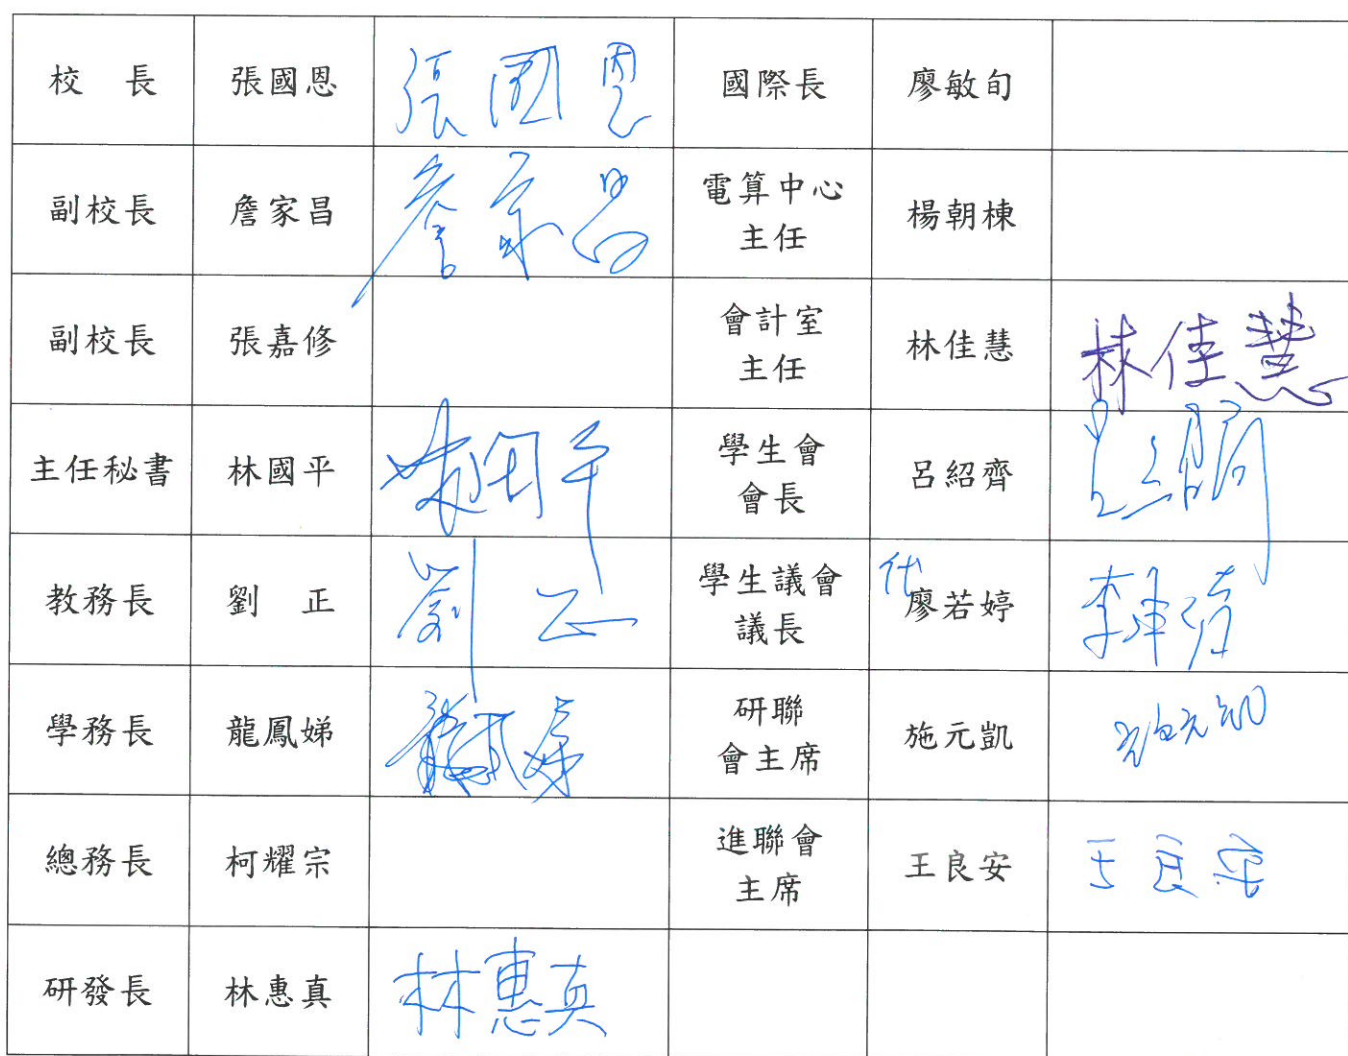 校 長 張國恩 張國恩 國際長 廖敏旬
副校長 詹家昌 詹家昌 電算中心
主任 楊朝棟
副校長 張嘉修 會計室
主任 林佳慧 林佳慧
主任秘書 林國平 林国平 學生會
會長 呂紹齊 呂紹齊
教務長 劉 正 劉正 學生議會
議長 代 廖若婷
學務長 龍鳳娣 龍鳳娣 研聯
會主席 施元凱 施元凱
總務長 柯耀宗 進聯會
主席 王良安 王良安
研發長 林惠真 林惠真